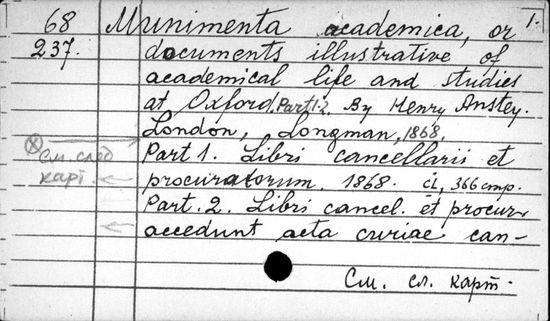 68 Munimenta academica, or 1.
237. documents illustrative of
academical life and studies
at Oxford. Part 1-2. By Henry Anstey.
London, Longman, 1868.
Part 1. Libri cancellarii et
см. след
procuratorum. 1868. ci, 366 стр.
карт.
Part. 2. Libri cancel. et procur.
accedunt acta curiae can-
См. сл. карт.